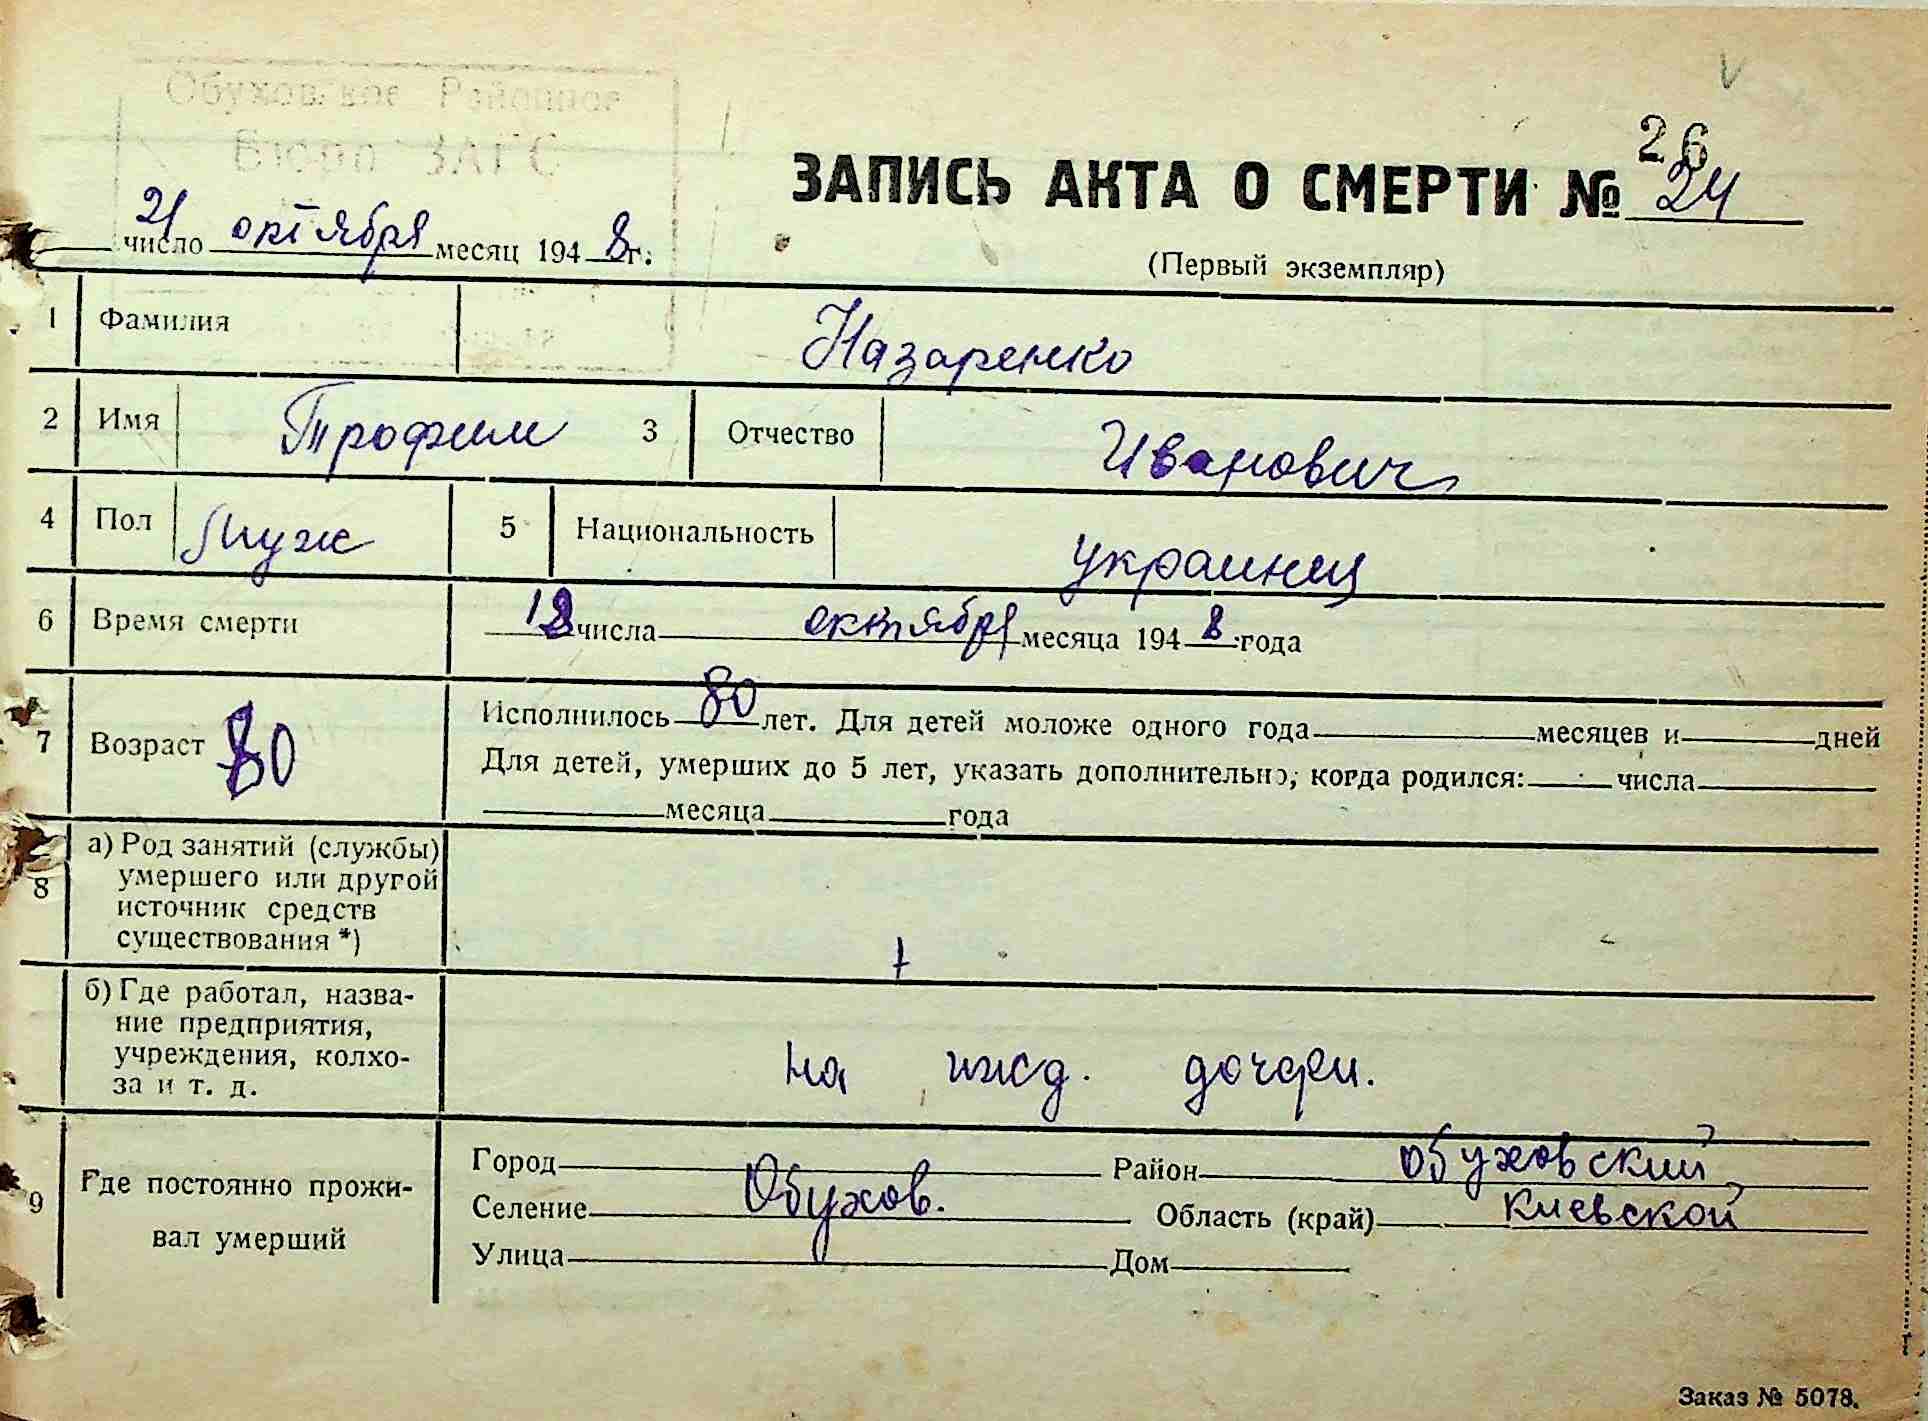 Обуховское Районное
Бюро ЗАГС
26
ЗАПИСЬ АКТА О СМЕРТИ № 24
21 число октября месяц 1948 г.
(Первый экземпляр)
1 Фамилия Назаренко
2 Имя Трофим 3 Отчество Иванович
4 Пол Муж 5 Национальность украинец
6 Время смерти числа октября месяца 1948 года
7 Возраст 80
Исполнилось 80 лет. Для детей моложе одного года месяцев и дней
Для детей, умерших до 5 лет, указать дополнительно, когда родился: числа
месяца года
8 а) Род занятий (службы)
умершего или другой
источник средств
существования *)
б) Где работал, назва-
ние предприятия,
учреждения, колхо-
за и т. д.
на ижд. дочери.
9 Где постоянно прожи-
вал умерший
Город Район Обуховский
Селение Обухов. Область (край) Киевской
Улица Дом
Заказ № 5078.